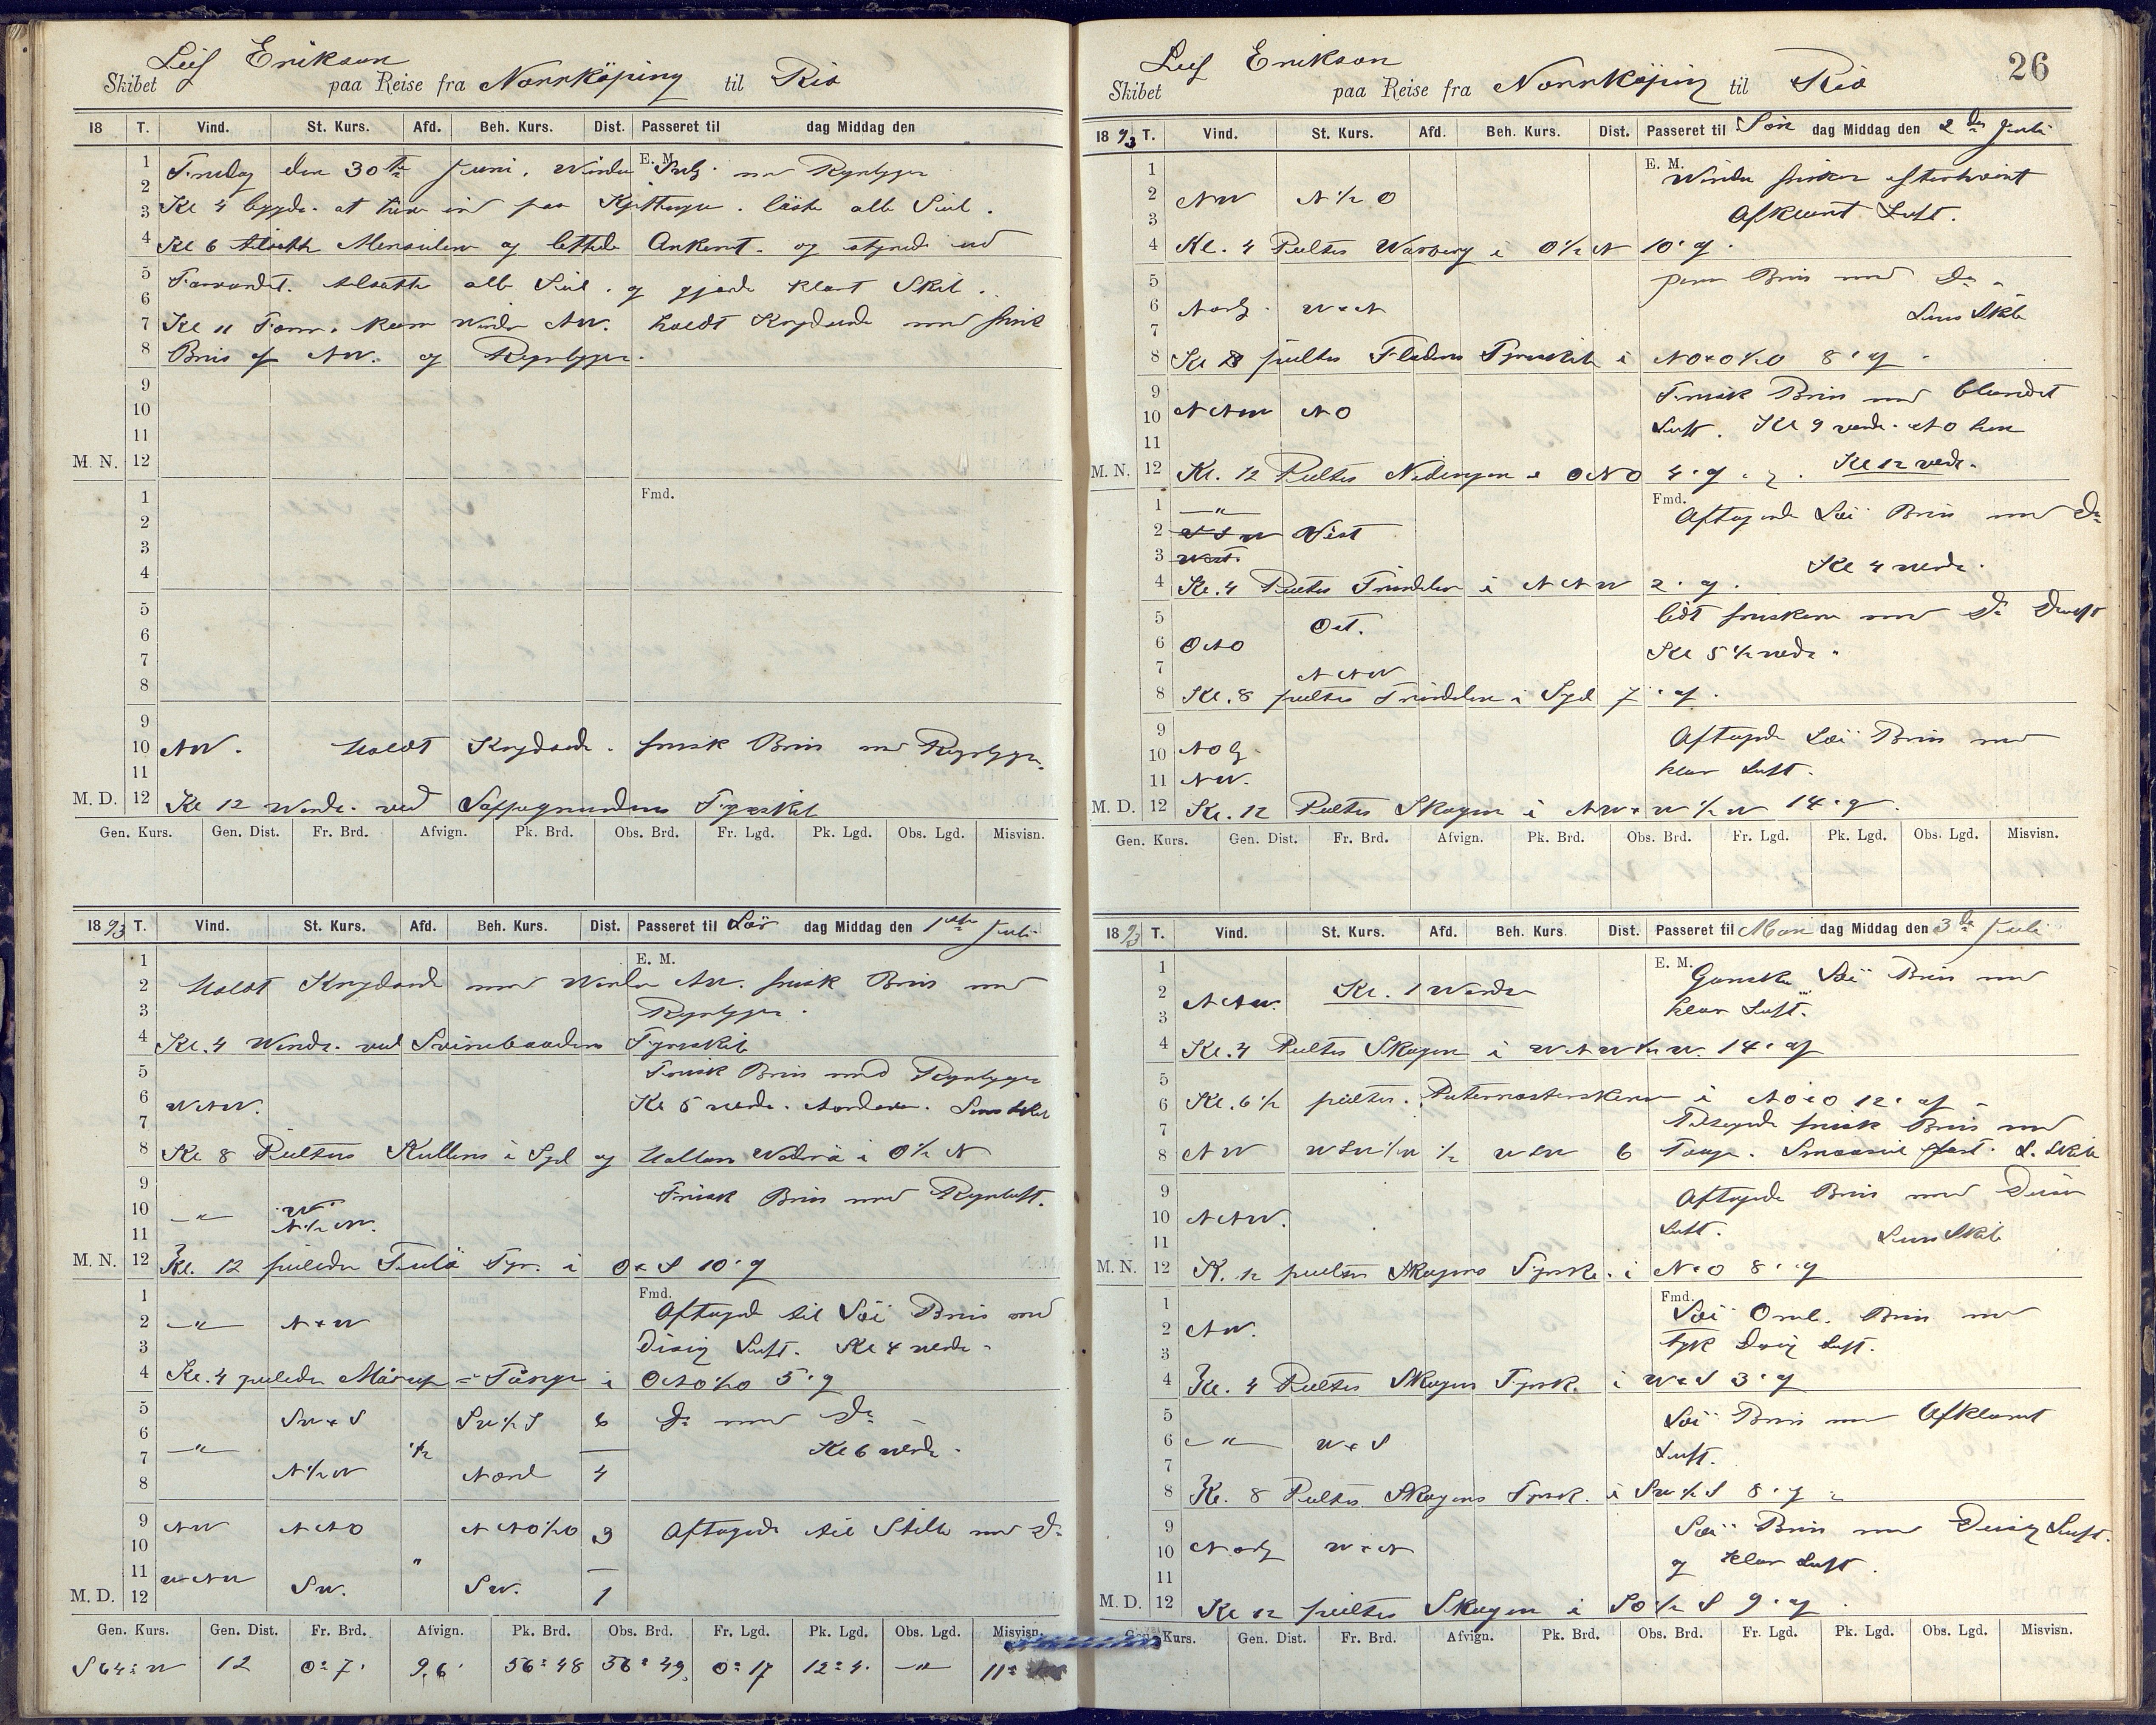 Leif Erikson
Skibet paa Reise fra Norrköping til Rio
18 T. Vind. St. Kurs. Afd. Beh. Kurs. Dist. Passeret til dag Middag den
E. M.
1 Fredag den 30te Juni. Winden med
2
3 Kl 4 at ind paa alle Seil.
4 Kl 6 og lettede Ankeret. og styrede ud
5 Farvandet. alle Seil. og gjorde klart Skib.
6
7 Kl 11 Form. Winden NW. holdt Krydsende med frisk
8 Bris af NW. og Regnbyger.
9
10
11
M. N. 12
Fmd.
1
2
3
4
5
6
7
8
9
10 NW. Holdt Krydsende. frisk Bris med Regnbyger.
11
M. D. 12 Kl 12 Wendte ved Fyrskib
Gen. Kurs. Gen. Dist. Fr. Brd. Afvign. Pk. Brd. Obs. Brd. Fr. Lgd. Pk. Lgd. Obs. Lgd. Misvisn.
1893 T. Vind. St. Kurs. Afd. Beh. Kurs. Dist. Passeret til Lör dag Middag den 1ste Juli
E. M.
1
2 Holdt Krydsende med Winden NW. frisk Bris med
3 Regnbyger.
4 Kl. 4 Wendte ved Svinebaadens Fyrskib
5 Frisk Bris med Regnbyger
6 WNW. Kl 5 vendte Lens Skib
7
8 Kl 8 Peiltes Kullens i Syd og Hallans Waderö i O½N
9 Frisk Bris med Regnluft.
10 " W
11 N½W.
M. N. 12 Kl. 12 peiledes Tulö Fyr. i O×S 10' af
Fmd.
1 Aftagende til Löi Bris med
2 " N×W
3 Disig Luft. Kl 4 vendte
4 Kl. 4 peiledes Mårup = Tånge i ONO½O 5' af
5 SW×S SW½S 6 Do med Do
6
7 " ½ Kl 6 vendte
8 N½W Nord 4
9 NW NNO NNO½O 3 Aftagende til Stille med Do
10
11 WNW "
M. D. 12 SW. SW. 1
Gen. Kurs. Gen. Dist. Fr. Brd. Afvign. Pk. Brd. Obs. Brd. Fr. Lgd. Pk. Lgd. Obs. Lgd. Misvisn.
S 64° W 12 0° 7' 9,6' 56° 48 56° 49 0° 17 12° 4' " 11°
26
Leif Erikson
Skibet paa Reise fra Norrköping til Rio
1893 T. Vind. St. Kurs. Afd. Beh. Kurs. Dist. Passeret til Sön dag Middag den 2den Juli
E. M.
1 Winden frisker efterhvert
2 NW N½O
3 Afklarnt Luft.
4 Kl. 4 Peiltes Warberg i O½N 10' af.
5 Bris med Do
6 Nordl. W×N Lens Skib
7
8 Kl 8 peiltes Fladens Fyrskib i NO×O½O 8' af
9 Frisk Bris med blandet
10 NNW NO
11 Luft. Kl 9 vendte NO hen
M. N. 12 Kl. 12 Peiltes Nidingen i ONO 4' af. Kl 12 vendte
Fmd.
1 " Aftagende Löi Bris med Do
2 Vest
3
4 Kl. 4 Peiltes Trindelen i NNW 2' af. Kl 4 vendte.
5 Ost. lidt friskere med Do
6 ONO Kl 5½ vendte
7 NNW
8 Kl. 8 peiltes Trindelen i Syd 7' af.
9 Aftagende Löi Bris med
10 NO
11 NW. klar Luft.
M. D. 12 Kl. 12 Peiltes Skagen i NW×W½W 14' af.
Gen. Kurs. Gen. Dist. Fr. Brd. Afvign. Pk. Brd. Obs. Brd. Fr. Lgd. Pk. Lgd. Obs. Lgd. Misvisn.
1893 T. Vind. St. Kurs. Afd. Beh. Kurs. Dist. Passeret til Man dag Middag den 3de Juli
E. M.
1 Ganske Löi Bris med
2 NNW. Kl. 1 Wendte
3 klar Luft.
4 Kl. 4 Peiltes Skagen i WNW½W. 14' af
5
6 Kl. 6½ peiltes. Paternosterskjer i NO×O 12' af
7 Tiltagende frisk Bris med
8 NW WSW½W ½ WSW 6 Taage. Smaaseil fast. L. Skib
9 Aftagende Bris med Disig
10 NNW.
11 Luft. Lens Skib
M. N. 12 Kl. 12 peiltes Skagens Fyrsk. i N×O 8' af
Fmd.
1 Löi Oml. Bris med
2 NW.
3 tyk Disig Luft.
4 Kl. 4 Peiltes Skagens Fyrsk. i W×S 3' af
5 Löi Bris med Afklarnt
6 " W×S
7 Luft.
8 Kl. 8 Peiltes Skagens Fyrsk. i SW½S 8' af
9 Löi Bris med Disig Luft.
10 Nordl W×N
11 og klar Luft.
M. D. 12 Kl 12 peiltes Skagen i SO½S 9' af.
Gen. Kurs. Gen. Dist. Fr. Brd. Afvign. Pk. Brd. Obs. Brd. Fr. Lgd. Pk. Lgd. Obs. Lgd. Misvisn.